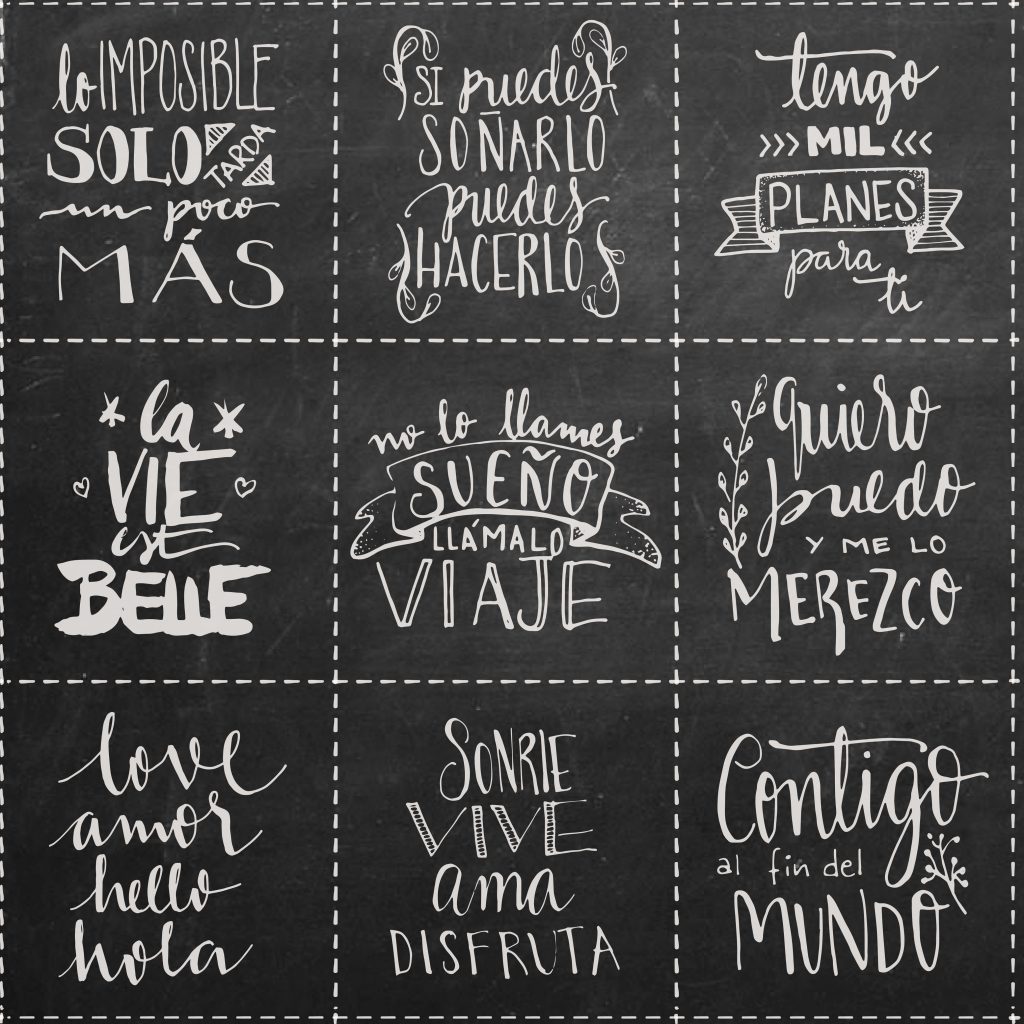 lo IMPOSIBLE
SOLO TARDA
un poco
MÁS
SI puedes
SOÑARLO
puedes
HACERLO
tengo
MIL
PLANES
para
ti
la
VIE
est
BELLE
no lo llames
SUEÑO
LLÁMALO
VIAJE
quiero
puedo
Y ME LO
MEREZCO
love
amor
hello
hola
SONRIE
VIVE
ama
DISFRUTA
Contigo
al fin del
MUNDO